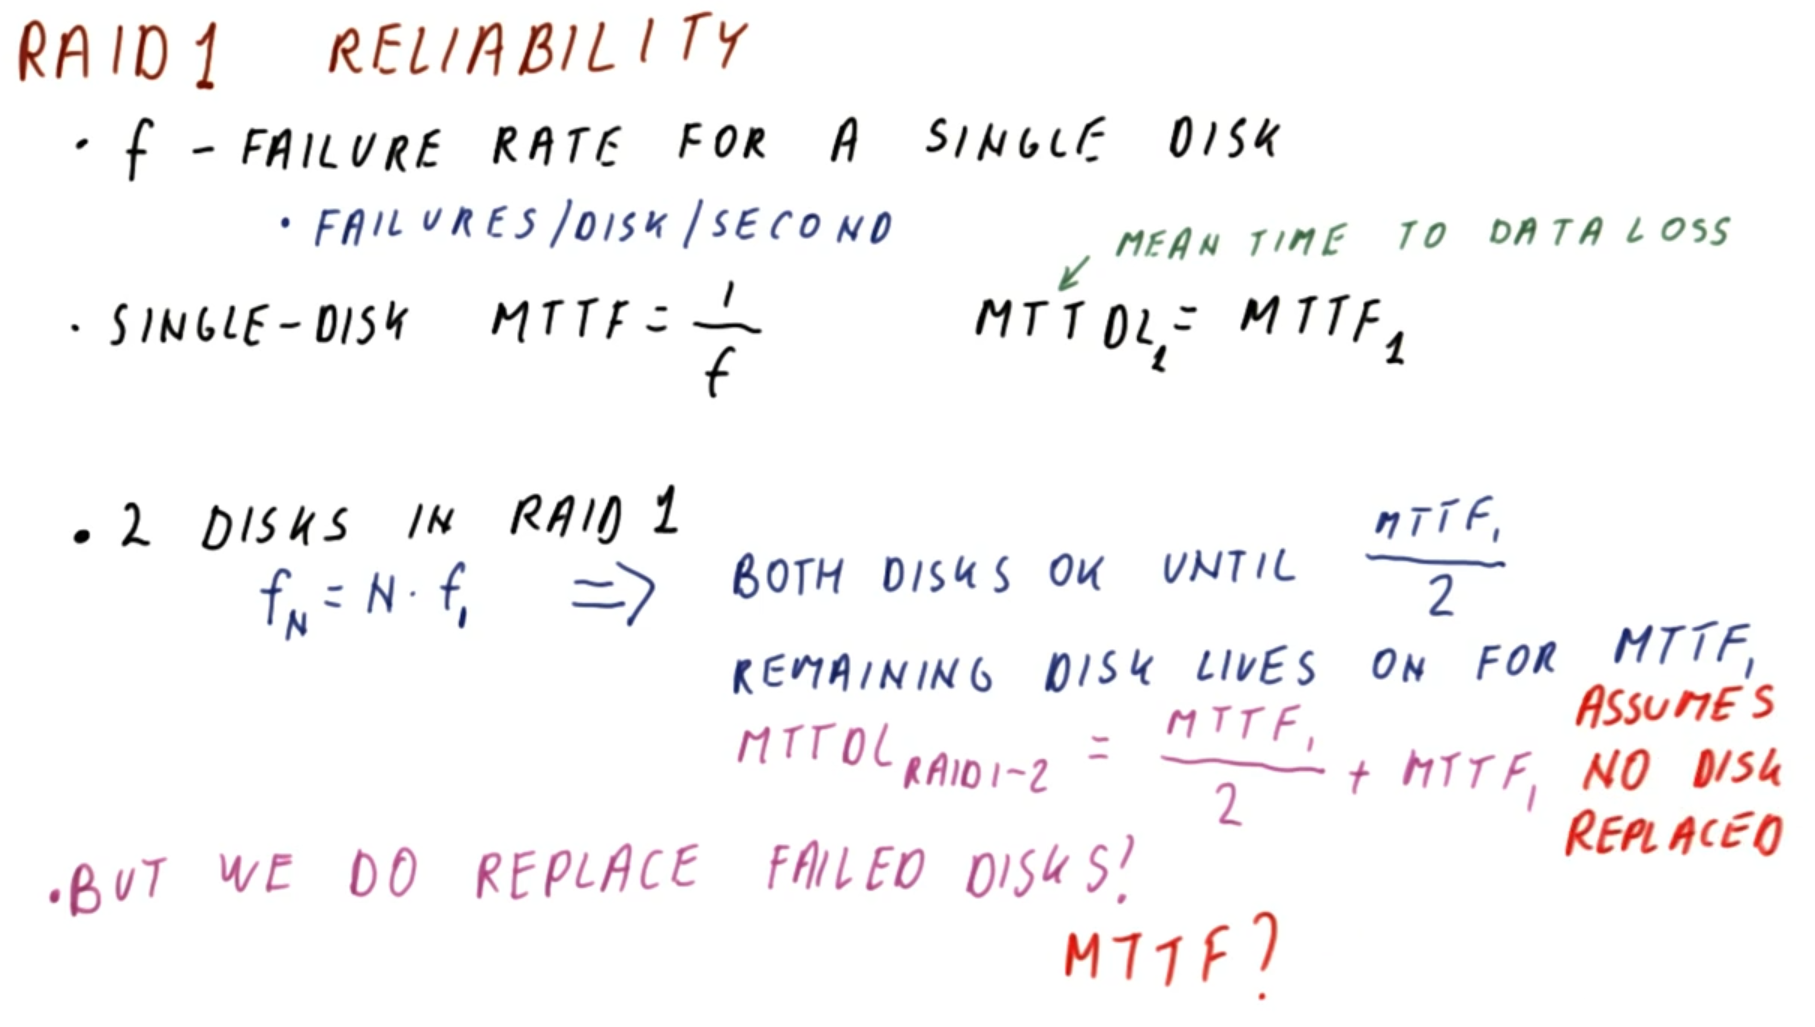 RAID 1 RELIABILITY
• f - FAILURE RATE FOR A SINGLE DISK
• FAILURES/DISK/SECOND
MEAN TIME TO DATA LOSS
• SINGLE-DISK MTTF = 1/f
MTTDL₁ = MTTF₁
• 2 DISKS IN RAID 1
f_N = N · f₁ ⇒ BOTH DISKS OK UNTIL MTTF₁/2
REMAINING DISK LIVES ON FOR MTTF₁
MTTDL_RAID1-2 = MTTF₁/2 + MTTF₁
ASSUMES
NO DISK
REPLACED
• BUT WE DO REPLACE FAILED DISKS!
MTTF?